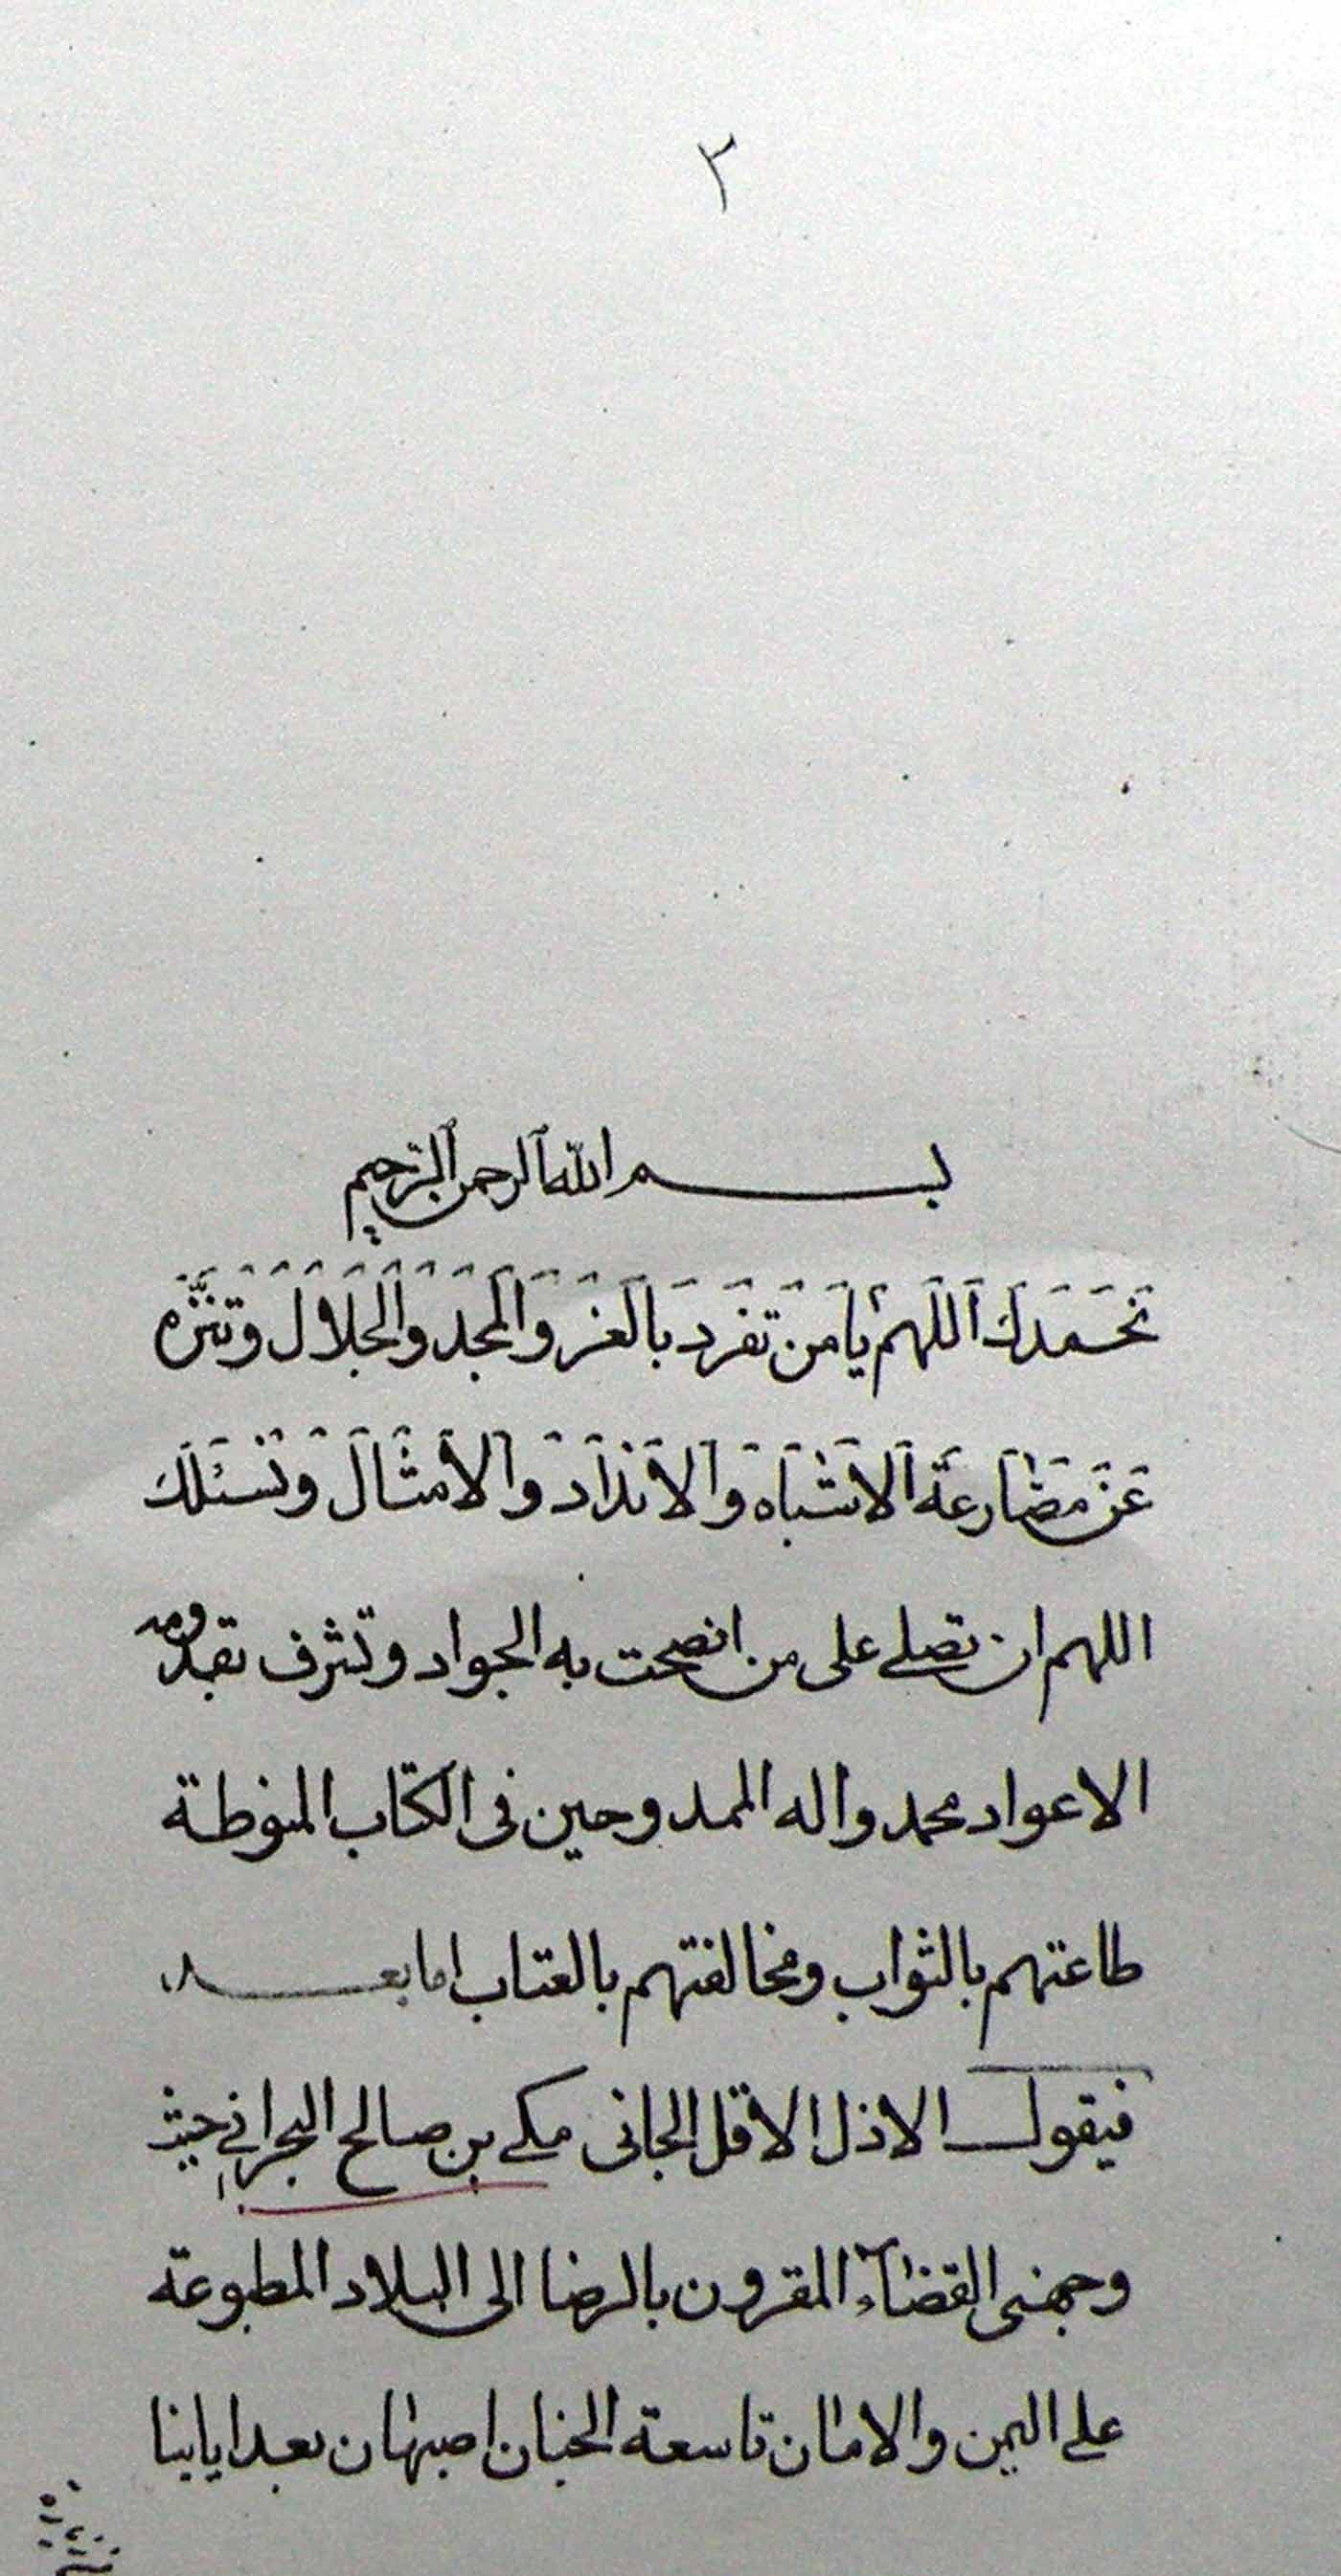 ٢
بسم الله الرحمن الرحيم
نحمدك اللهم يا من تفرد بالعز والمجد والجلال وتنزه
عن مضارعة الاشباه والانداد والامثال ونسئلك
اللهم ان تصلي على من انصحت به الجواد وتشرف بقدومه
الاعواد محمد واله الممدوحين في الكتاب المنوطة
طاعتهم بالثواب ومخالفتهم بالعتاب اما بعد
فيقول الاذل الاقل الجاني مكي بن صالح البحراني حيث
وجهني القضآء المقرون بالرضا الى البلاد المطبوعة
على اليمن والامان تاسعة الجنان اصبهان بعد ايابنا